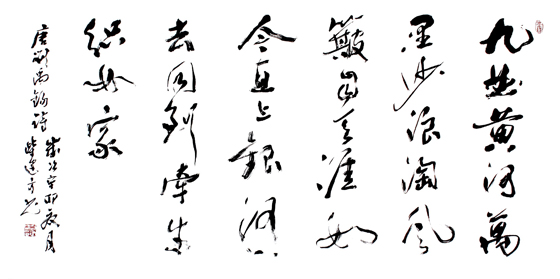 九曲黄河萬
里沙浪淘風
簸自天涯如
今直上銀河
去同到牽牛
織女家
唐劉禹錫詩 歲次辛卯夏月